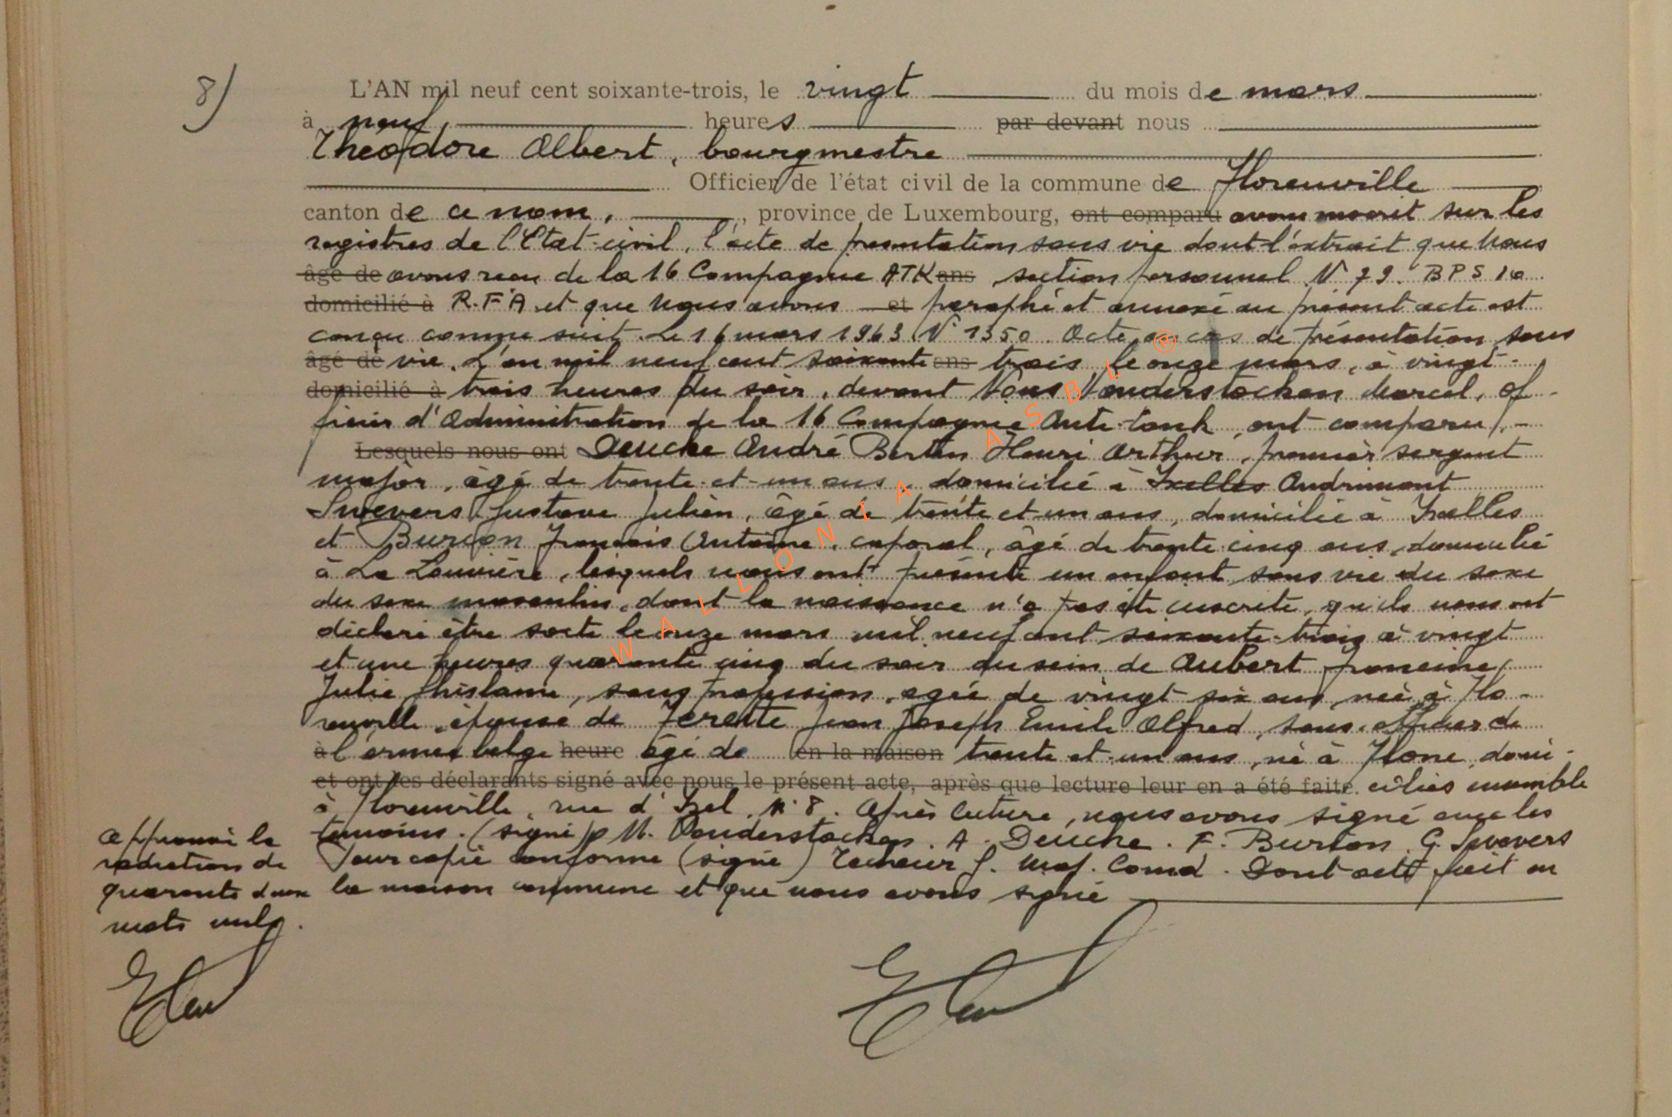 8)
L'AN mil neuf cent soixante-trois, le vingt du mois de mars
à neuf heures par devant nous
Théodore Albert, bourgmestre
Officier de l'état civil de la commune de Florenville
canton de ce nom, province de Luxembourg, ont comparu avons inscrit sur les
registres de l'Etat-civil, l'acte de présentation sans vie dont l'extrait que Nous
âgé de avons reçu de la 16 Compagnie ATK ans section personnel N° 79. BPS 16
domicilié à R.F.A et que Nous avons et paraphé et annexé au présent acte est
conçu comme suit. Le 16 mars 1963 N° 1350 Acte de présentation sans
âgé de vie. L'an mil neuf cent soixante ans trois le onze mars, à vingt-
domicilié à trois heures du soir, devant Nous Vanderstocken Marcel, of-
ficier d'Administration de la 16 Compagnie Anti-tank, ont comparu,-
Lesquels nous ont Deuche André Bertin Henri Arthur, premier sergent
major, âgé de trente-et-un ans, domicilié à Ixelles Andrimont
Swevers Gustave Julien, âgé de trente et un ans, domicilié à Ixelles
et Burion François Antoine, caporal, âgé de trente cinq ans, domicilié
à La Louvière, lesquels nous ont présenté un enfant sans vie du sexe
du sexe masculin, dont la naissance n'a pas été inscrite, qu'ils nous ont
déclaré être sorti le onze mars mil neuf cent soixante-trois à vingt
et une heures quarante cinq du soir du sein de Aubert Francine
Julie Ghislaine, sans profession, agée de vingt six ans, née à Flo-
renville, épouse de Ferette Jean Joseph Emile Alfred, sous-officier de
à l'armée belge heure âgé de en la maison trente et-un ans, né à Flone, domi-
et ont les déclarants signé avec nous le présent acte, après que lecture leur en a été faite. ciliés ensemble
à Florenville, rue d'Izel, N° 8. Après lecture, nous avons signé avec les
témoins. (signé) M. Vanderstocken. A. Deuche. F. Burion. G. Swevers
Pour copie conforme (signé) Maj. Comd. Dont acte fait en
la maison commune et que nous avons signé
Approuvé la
radiation de
quarante deux
mots nuls.
WALLONIA ASBL ®